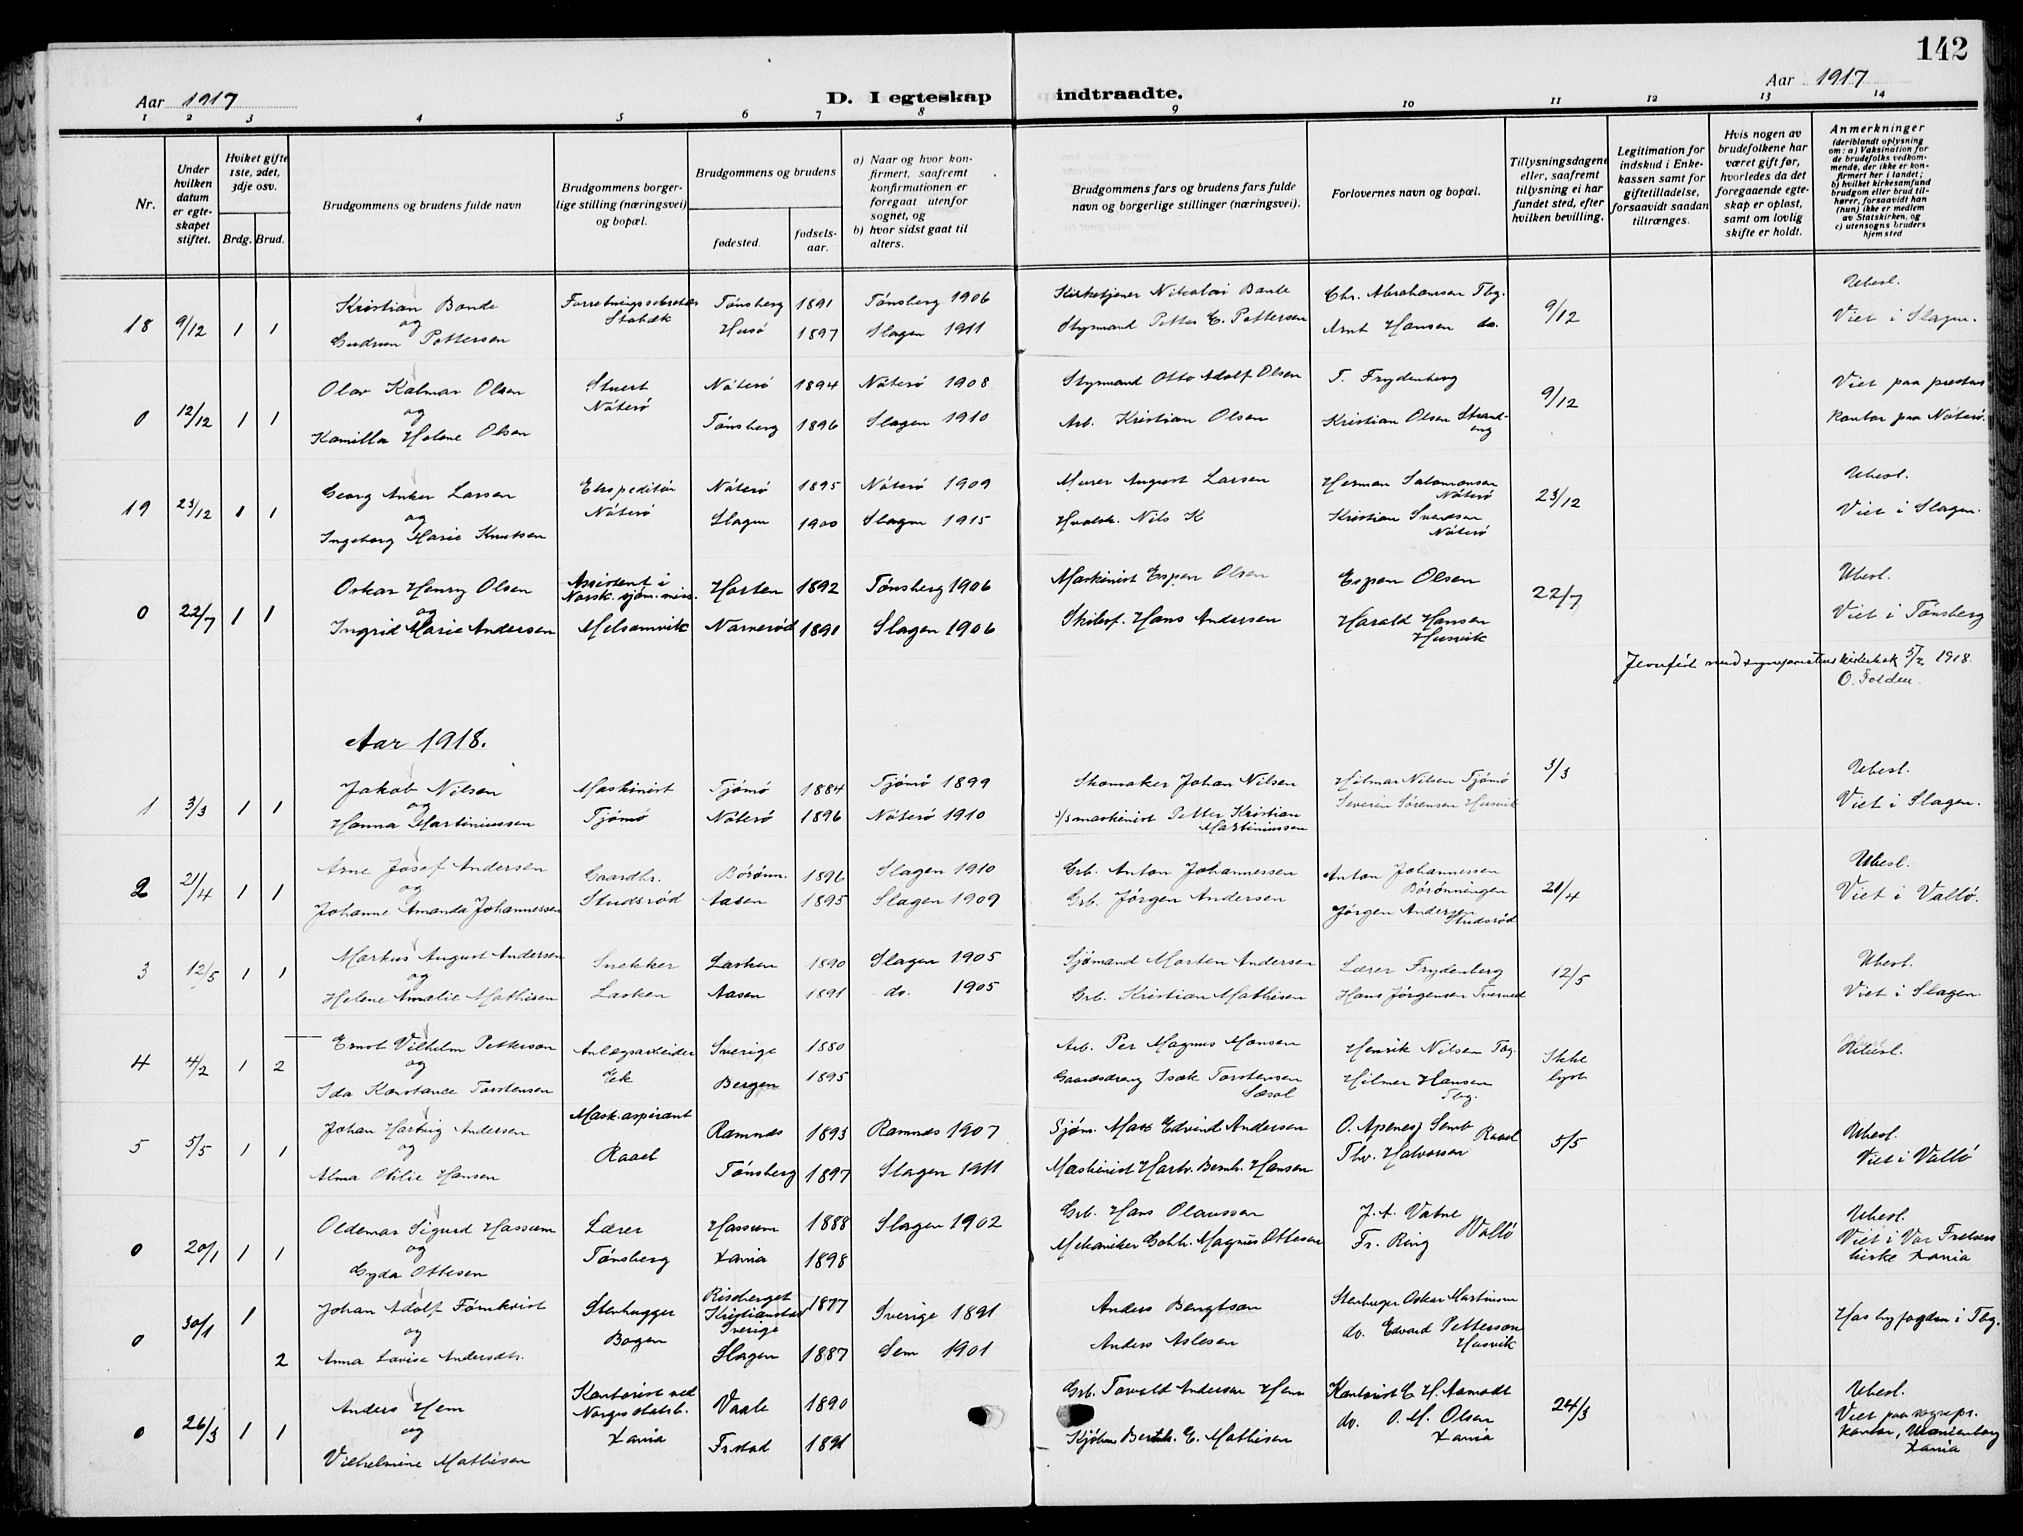 142
Aar 1917
D. I egteskap indtraadte.
Aar 1917
1 2 3 4 5 6 7 8 9 10 11 12 13 14
Nr.
Under hvilken datum er egteskapet stiftet.
Hvilket gifte 1ste, 2det, 3dje osv.
Brdg. Brud.
Brudgommens og brudens fulde navn
Brudgommens borgerlige stilling (næringsvei) og bopæl.
Brudgommens og brudens
fødested.
fødsels-aar.
a) Naar og hvor konfirmert, saafremt konfirmationen er foregaat utenfor sognet, og
b) hvor sidst gaat til alters.
Brudgommens fars og brudens fars fulde navn og borgerlige stillinger (næringsvei).
Forlovernes navn og bopæl.
Tillysningsdagene eller, saafremt tillysning ei har fundet sted, efter hvilken bevilling.
Legitimation for indskud i Enkekassen samt for giftetilladelse, forsaavidt saadan tiltrænges.
Hvis nogen av brudefolkene har været gift før, hvorledes da det foregaaende egteskap er opløst, samt om lovlig skifte er holdt.
Anmerkninger
(deriblandt oplysning om: a) Vaksination for de brudefolks vedkommende, der ikke er konfirmert her i landet; b) hvilket kirkesamfund brudgom eller brud tilhører, forsaavidt han (hun) ikke er medlem av Statskirken, og c) utensogns bruders hjemsted
18 9/12 1 1 Kristian Bonde Tønsberg 1891 Tønsberg 1906 Kirketjener Nikolai Bonde Chr. Abrahamsen Tbg. 9/12 Ubesl.
og Stabæk
Gudrun Pettersen Husø 1897 Slagen 1911 Styrmand Petter E. Pettersen Arnt Hansen do. Viet i Slagen.
0 12/12 1 1 Olav Kalmar Olsen Stuert Nøterø 1894 Nøterø 1908 Styrmand Otto Adolf Olsen T. Frydenberg 9/12 Viet paa prestens
og Nøterø
Kamilla Helene Olsen Tønsberg 1896 Slagen 1910 Arb. Kristian Olsen Kristian Olsen Strandeng kontor paa Nøterø.
19 23/12 1 1 Georg Anker Larsen Ekspeditør Nøterø 1895 Nøterø 1909 Murer August Larsen Herman Salomonsen Nøterø 23/12 Ubesl.
og Nøterø
Ingeborg Marie Knutsen Slagen 1900 Slagen 1915 Hvalsk. Nils K Kristian Svendsen Nøterø Viet i Slagen.
0 22/7 1 1 Oskar Henry Olsen Assistent i Norsk. sjøm. Horten 1892 Tønsberg 1906 Maskinist Espen Olsen Espen Olsen 22/7 Ubesl.
og
Ingrid Marie Andersen Melsomvik Narverød 1891 Slagen 1906 Skibsf. Hans Andersen Harald Hansen Husvik Viet i Tønsberg
Jevnført med sogneprestens kirkebok 5/2 1918.
O. Folden.
Aar 1918.
1 3/3 1 1 Jakob Nilsen Maskinist Tjømø 1884 Tjømø 1899 Skomaker Johan Nilsen Hilmar Nilsen Tjømø 3/3 Ubesl.
og
Hanna Martiniussen Tjømø Nøterø 1896 Nøterø 1910 maskinist Petter Kristian Martiniussen Severin Sørensen Husvik Viet i Slagen.
2 21/4 1 1 Arne Josef Andersen Gaardbr. Børønn. 1896 Slagen 1910 Grb. Anton Johannessen Anton Johannessen Børønningen 21/4 Ubesl.
og
Johanne Amanda Johannessen Studsrød Aasen 1895 Slagen 1909 Grb. Jørgen Andersen Jørgen Andersen Studsrød Viet i Vallø.
3 12/5 1 1 Markus August Andersen Snekker Lasken 1890 Slagen 1905 Sjømand Morten Andersen Lærer Frydenberg 12/5 Ubesl.
og
Helene Amalie Mathisen Lasken Aasen 1891 do. 1905 Grb. Kristian Mathisen Hans Jørgensen Tverved Viet i Slagen.
4 4/2 1 2 Ernst Vilhelm Petterson Anlægsarbeider Sverige 1880 Arb. Per Magnus Monsen Henrik Nilsen Tbg. Ikke lyst Ubesl.
og Eik
Ida Konstance Torstensen Bergen 1895 Gaardsdreng Isak Torstensen Hilmer Hansen Tbg.
5 5/5 1 1 Johan Hartvig Andersen Mask. aspirant Ramnes 1893 Ramnes 1907 Sjøm. Marx Edvind Andersen O. Apenes, Semb 5/5 Ubesl.
og Raael
Alma Otilie Hansen Tønsberg 1897 Slagen 1911 Maskinist Hartv. Bernh. Hansen Thv. Halvorsen Raael Viet i Vallø
0 20/1 1 1 Oldemar Sigurd Hassum Lærer Hassum 1888 Slagen 1902 Grb. Hans Olaussen J. A. Vatne Vallø Ubesl.
og
Gyda Ottesen Tønsberg Xania 1898 Mekaniker Gohl. Magnus Ottesen Fr. Ring Viet i Vor Frelsers kirke Xania
0 30/1 1 Johan Adolf Fømkvist Stenhugger Risberget Kristianstad Sverige 1877 Sverige 1891 Anders Bengtson Stenhugger Oskar Martinsen Hos byfogden i Tbg.
og Bogen
2 Anna Lovise Andersdtr. Slagen 1887 Sem 1901 Anders Aslesen do. Edvard Petterson Husvik
0 26/3 1 1 Anders Hem Kontorist ved Norges statsb. Vaale 1890 Grb. Torvald Andersen Hem Kontorist C. H. Aamodt 24/3 Ubesl.
og Xania
Vilhelmine Mathisen Frstad 1891 Kjøbm. Bernh. E. Mathisen do. O. M. Olsen Xania Viet paa sognepr. kontor, Uranienborg Xania